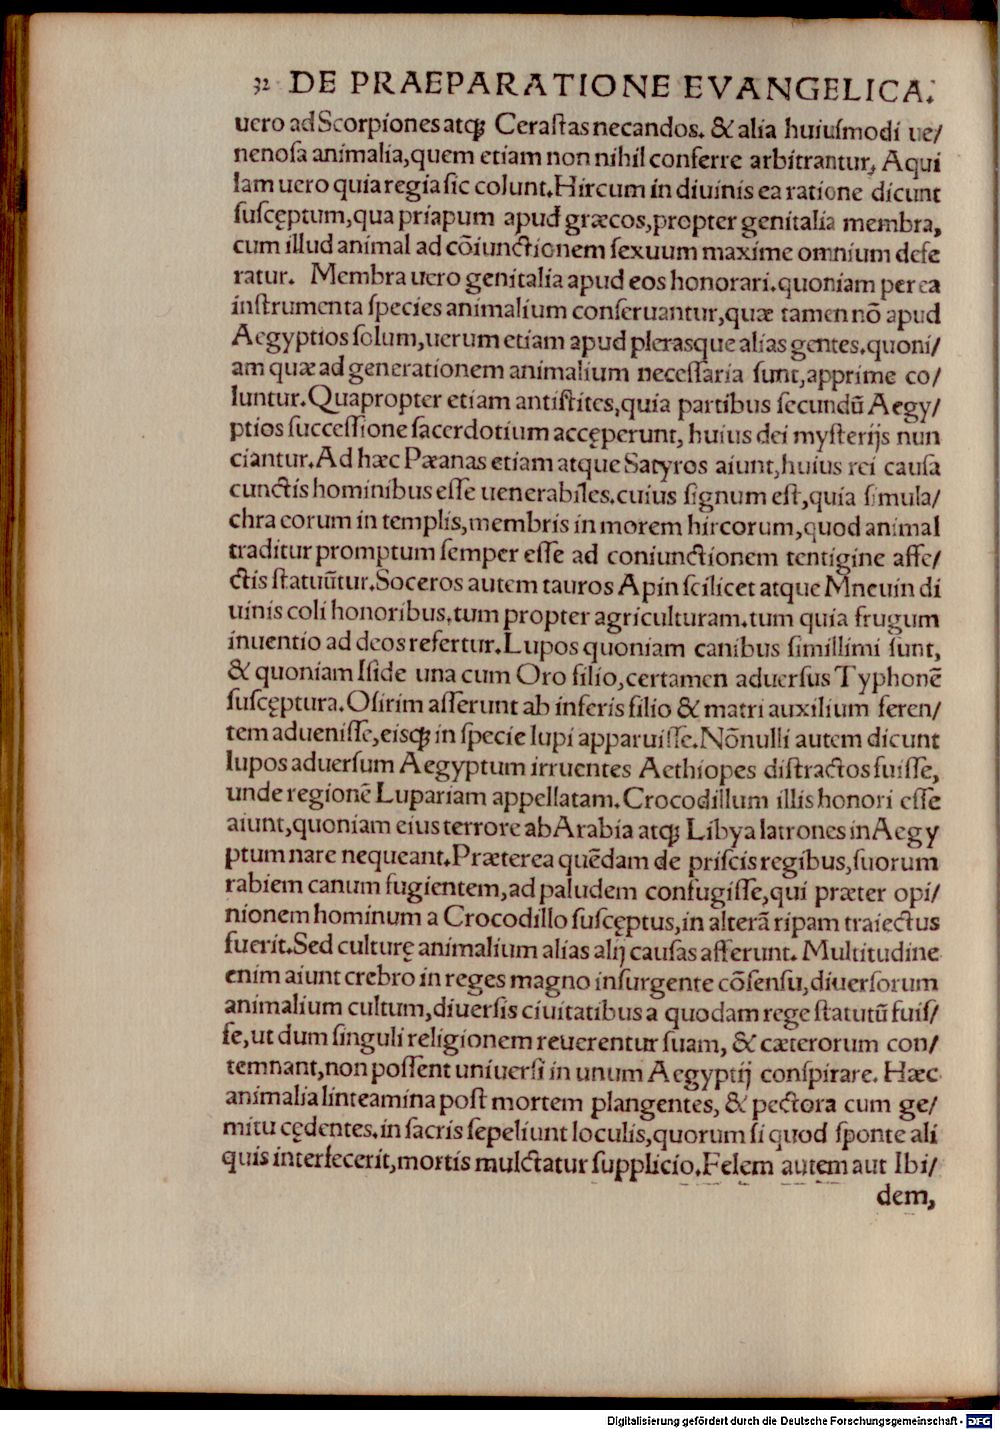 32 DE PRAEPARATIONE EVANGELICA.
uero ad Scorpiones atqꝫ Cerastas necandos. & alia huiusmodi ue/
nenosa animalia, quem etiam non nihil conferre arbitrantur, Aqui
lam uero quia regia sic colunt. Hircum in diuinis ea ratione dicunt
suscęptum, qua priapum apud græcos, propter genitalia membra,
cum illud animal ad cõiunctionem sexuum maxime omnium defe
ratur. Membra uero genitalia apud eos honorari. quoniam per ea
instrumenta species animalium conseruantur, quæ tamen nõ apud
Aegyptios solum, uerum etiam apud plerasque alias gentes. quoni/
am quæ ad generationem animalium necessaria sunt, apprime co/
luntur. Quapropter etiam antistites, quia partibus secundũ Aegy/
ptios successione sacerdotium accęperunt, huius dei mysterijs nun
ciantur. Ad hæc Pæanas etiam atque Satyros aiunt, huius rei causa
cunctis hominibus esse uenerabiles. cuius signum est, quia simula/
chra eorum in templis, membris in morem hircorum, quod animal
traditur promptum semper esse ad coniunctionem tentigine affe/
ctis statuũtur. Soceros autem tauros Apin scilicet atque Mneuin di
uinis coli honoribus. tum propter agriculturam. tum quia frugum
inuentio ad deos refertur. Lupos quoniam canibus simillimi sunt,
& quoniam Iside una cum Oro filio, certamen aduersus Typhonẽ
suscęptura. Osirim asserunt ab inferis filio & matri auxilium feren/
tem aduenisse, eisqꝫ in specie lupi apparuisse. Nõnulli autem dicunt
lupos aduersum Aegyptum irruentes Aethiopes distractos fuisse,
unde regionẽ Lupariam appellatam. Crocodillum illis honori esse
aiunt, quoniam eius terrore ab Arabia atqꝫ Libya latrones in Aegy
ptum nare nequeant. Præterea quẽdam de priscis regibus, suorum
rabiem canum fugientem, ad paludem confugisse, qui præter opi/
nionem hominum a Crocodillo suscęptus, in alterã ripam traiectus
fuerit. Sed culturę animalium alias alij causas afferunt. Multitudine
enim aiunt crebro in reges magno insurgente cõsensu, diuersorum
animalium cultum, diuersis ciuitatibus a quodam rege statutũ fuis/
se, ut dum singuli religionem reuerentur suam, & cæterorum con/
temnant, non possent uniuersi in unum Aegyptij conspirare. Hæc
animalia linteamina post mortem plangentes, & pectora cum ge/
mitu cędentes. in sacris sepeliunt loculis, quorum si quod sponte ali
quis interfecerit, mortis mulctatur supplicio. Felem autem aut Ibi/
dem,
Digitalisierung gefördert durch die Deutsche Forschungsgemeinschaft - DFG